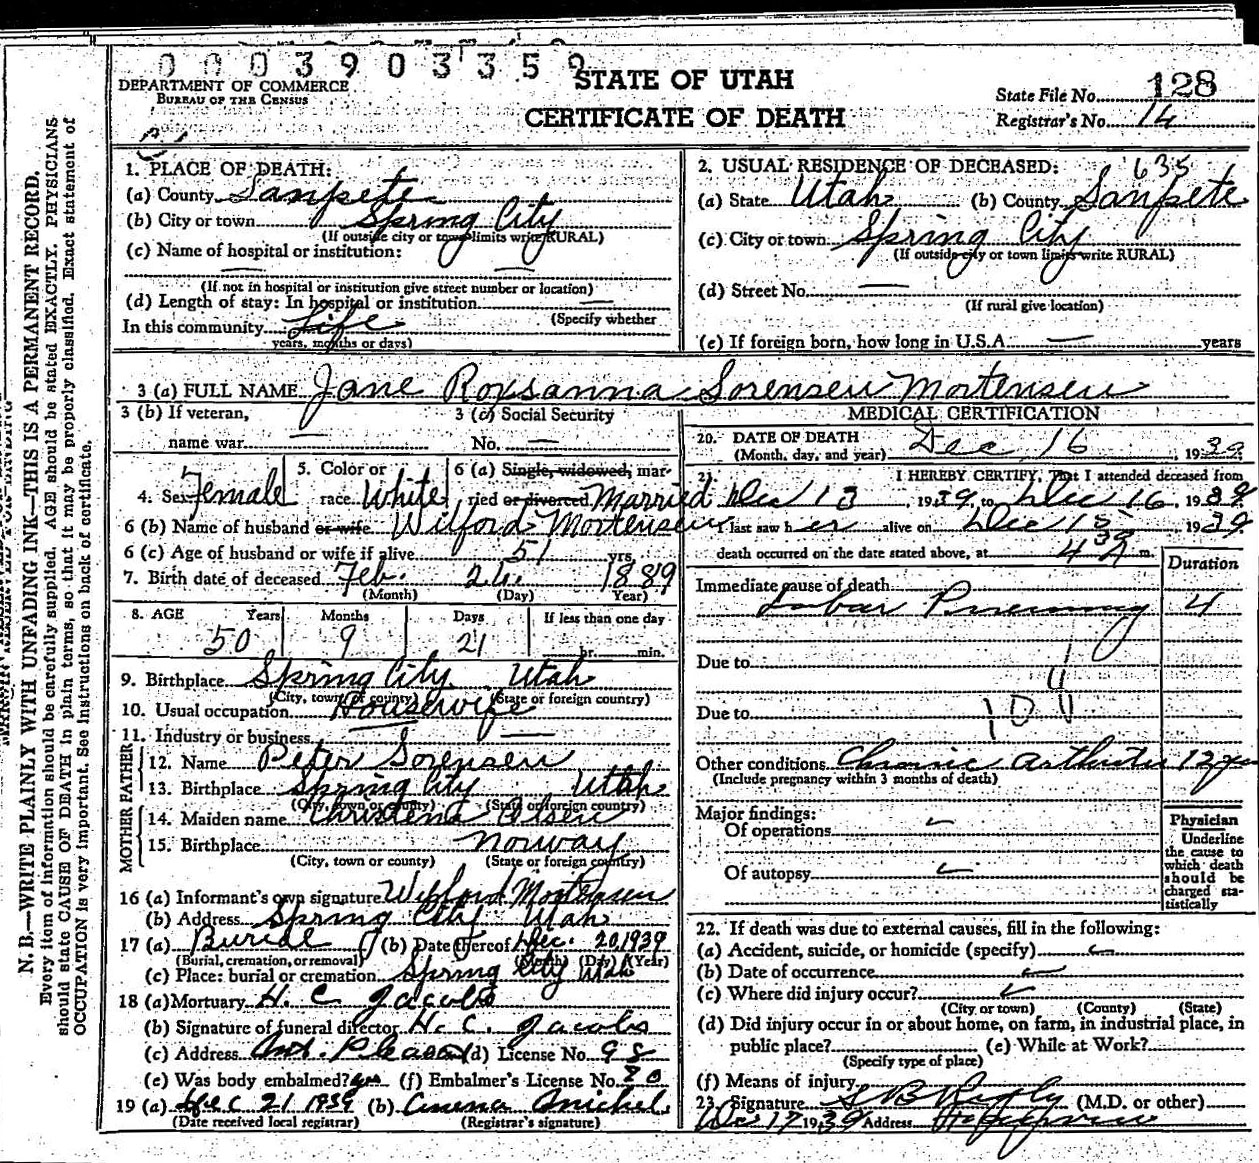 0003903359
STATE OF UTAH
CERTIFICATE OF DEATH
DEPARTMENT OF COMMERCE
BUREAU OF THE CENSUS
State File No. 128
Registrar's No. 14
N. B.—WRITE PLAINLY WITH UNFADING INK—THIS IS A PERMANENT RECORD.
Every item of information should be carefully supplied. AGE should be stated EXACTLY. PHYSICIANS
should state CAUSE OF DEATH in plain terms, so that it may be properly classified. Exact statement of
OCCUPATION is very important. See instructions on back of certificate.
1. PLACE OF DEATH:
(a) County Sanpete
(b) City or town Spring City
(If outside city or town limits write RURAL)
(c) Name of hospital or institution: —
(If not in hospital or institution give street number or location)
(d) Length of stay: In hospital or institution —
(Specify whether
In this community Life
years, months or days)
2. USUAL RESIDENCE OF DECEASED: 635
(a) State Utah (b) County Sanpete
(c) City or town Spring City
(If outside city or town limits write RURAL)
(d) Street No. —
(If rural give location)
(e) If foreign born, how long in U.S.A. — years
3 (a) FULL NAME Jane Roxsanna Sorensen Mortensen
3 (b) If veteran, 3 (c) Social Security
name war — No. —
4. Sex Female 5. Color or race White 6 (a) Single, widowed, married or divorced Married
6 (b) Name of husband or wife Wilford Mortensen
6 (c) Age of husband or wife if alive 51 yrs.
7. Birth date of deceased Feb. 24 1889
(Month) (Day) Year)
8. AGE Years Months Days If less than one day
50 9 21 hr. min.
9. Birthplace Spring City Utah
(City, town or county) (State or foreign country)
10. Usual occupation Housewife
11. Industry or business —
FATHER
12. Name Peter Sorensen
13. Birthplace Spring City Utah
(City, town or county) (State or foreign country)
MOTHER
14. Maiden name Christena Olsen
15. Birthplace Norway
(City, town or county) (State or foreign country)
16 (a) Informant's own signature Wilford Mortensen
(b) Address Spring City Utah
17 (a) Burial (b) Date thereof Dec. 20, 1939
(Burial, cremation, or removal) (Month) (Day) (Year)
(c) Place: burial or cremation Spring City Utah
18 (a) Mortuary H. C. Jacobs
(b) Signature of funeral director H. C. Jacobs
(c) Address Mt. Pleasant (d) License No. 98
(e) Was body embalmed? yes (f) Embalmer's License No. 80
19 (a) Dec 21 1939 (b)
(Date received local registrar) (Registrar's signature)
MEDICAL CERTIFICATION
20. DATE OF DEATH Dec 16, 1939
(Month, day, and year)
21. I HEREBY CERTIFY, That I attended deceased from
Dec 13, 1939, to Dec 16, 1939
I last saw her alive on Dec 15 1939
death occurred on the date stated above, at 4 30 A m.
Duration
Immediate cause of death
Lobar Pneumony 4
Due to
Due to
Other conditions Chronic arthritis 12 yrs
(Include pregnancy within 3 months of death)
Major findings:
Of operations
Of autopsy
Physician
Underline
the cause to
which death
should be
charged sta-
tistically
22. If death was due to external causes, fill in the following:
(a) Accident, suicide, or homicide (specify)
(b) Date of occurrence
(c) Where did injury occur?
(City or town) (County) (State)
(d) Did injury occur in or about home, on farm, in industrial place, in
public place? (e) While at Work?
(Specify type of place)
(f) Means of injury
23. Signature (M.D. or other)
Dec 17 1939 Address